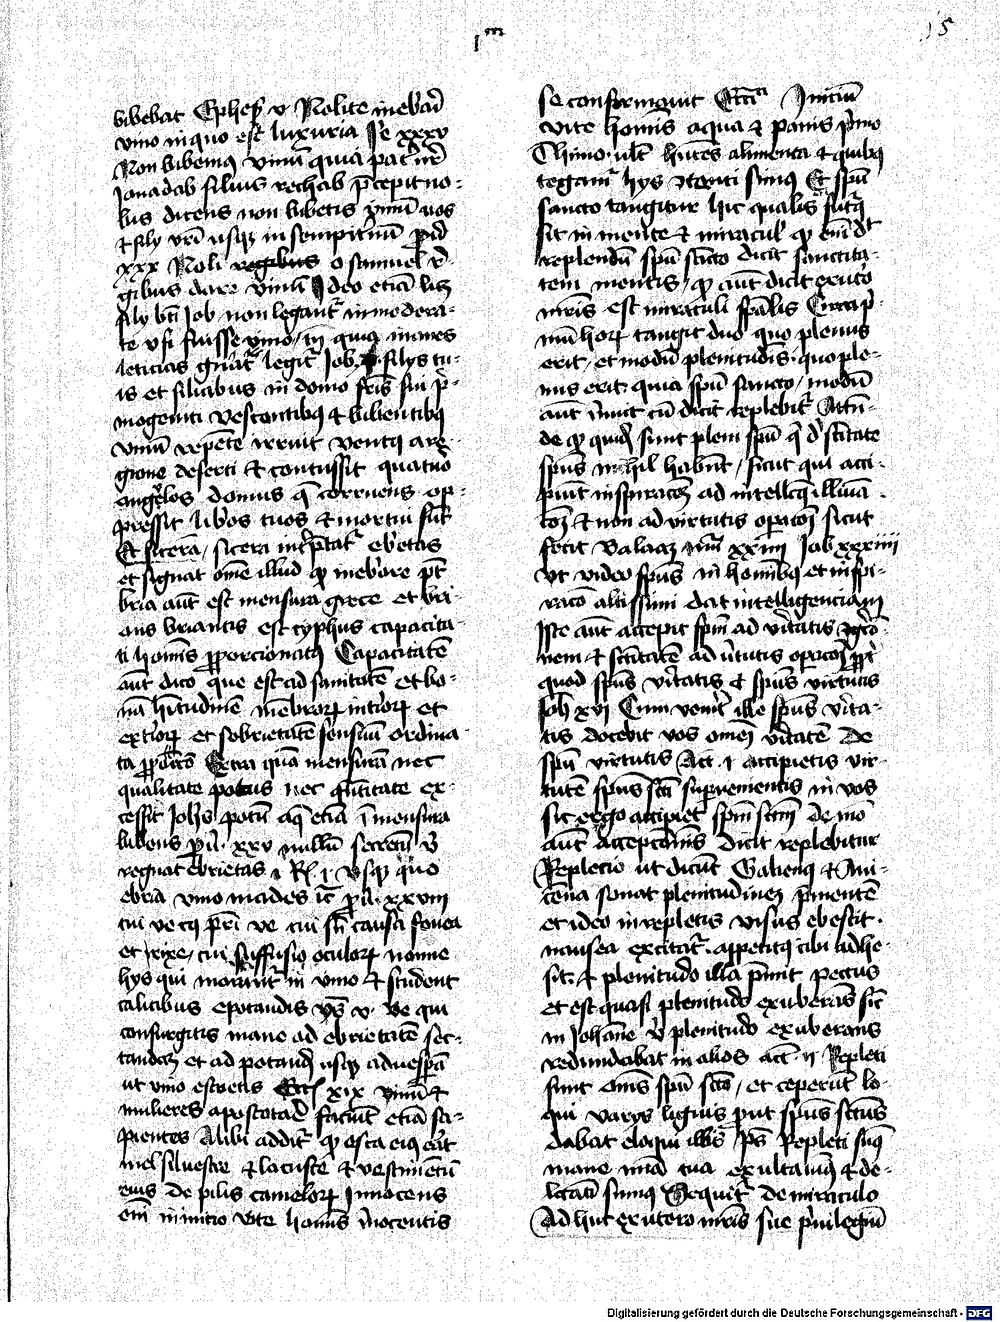 1m
15
bibebat Ephes v Nolite inebriari
vino in quo est luxuria Je xxxv
Non bibemus vinum quia pater nr
Jonadab filius rechab precepit no-
bis dicens non bibetis vinum vos
et filij vri usque in sempiternum
xxx Noli regibus o samuel re-
gibus dare vinum Ideo etiam
filij bti Job non legantur inmodera-
te usi fuisse vino
leticias legitur Job filijs tu-
is et filiabus in domo fris sui pri-
mogeniti vescentibus et bibentibus
vinum repente irruit ventus a re-
gione deserti et concussit quatuor
angelos domus q corruens op-
pressit liberos tuos et mortui sunt
Et siceram sicera interpretatur ebrietas
et signat ome illud quod inebriare pt
bria aut est mensura grece et
briantis est cyphus capacita-
ti hominis proporcionatus Capacitatem
aut dico que est ad sanitatem et bo-
nam habitudinem membrorum interiorum et
exteriorum et sobrietatem sensuum ordina-
ta Extra quam mensuram nec
qualitate potus nec quantitate ex-
cessit Johes potum aque etiam in mensura
bibens xxv nullum secretum
regnat ebrietas usque quo
ebria vino xxviii
cui ve cui sine causa fovea
et rixe cui suffusio oculorum nonne
hijs qui morantur in vino et student
calicibus epotandis ys v ve qui
consurgitis mane ad ebrietatem sec-
tandam et ad potandum usque ad vesperam
ut vino estuetis Eccl xix vinum et
mulieres apostotare faciunt etiam sa-
pientes Alibi additur quod esca eius erat
mel silvestre et locuste et vestimentum
eius de pilis camelorum Innocens
eni in inicio vite hominis innocentis
se conformavit Ecci Inicium
vite hominis aqua et panis primo
Thimo ult hntes alimenta et quibus
tegamur hys contenti simus Et spu
sancto tangitur hic qualis
sit in mente et miracul
replendum spu scto dicit sanctita-
tem mentis quod aut dicit ex utero
mris est miraculi Circa pri-
mum horum tangit duo quo plenus
erit et modum plenitudinis quo ple-
nus erit quia spu sancto modum
aut cum dicit replebitur Atten-
de quod quidem sunt pleni spu
spus nichil habent sicut qui acci-
piunt inspiracionem ad intellectus illumina-
tionem et non ad virtutis operacionem sicut
fecit Balaam num xxiiii Job xxxiiii
ut video spus in hominibus et inspi-
racio altissimi dat intelligenciam
Iste aut accepit spm ad veritatis
nem et sctitatem ad virtutis operacionem
quod spus veritatis et spus virtutis
Joh xvi Cum venerit ille spus verita-
tis docebit vos omnem veritatem De
spu virtutis Act i accipietis vir-
tutem spus scti supervenientis in vos
sic ergo accipiet spm sctm de mo
aut accepcionis dicit replebitur
Replecio ut dicunt Galienus et Avi-
cena sonat plenitudinem
et ideo in repletis visus ebescit
nausea excitatur appetitus cibi
sit et plenitudo illa premit pectus
et est quasi plenitudo exuberans sic
in Johane plenitudo exuberans
redundabat in alios act ii Repleti
sunt omnes spu scto et ceperunt lo-
qui varijs liguis put spus sctus
dabat eloqui illis ps Repleti sumus
mane mia tua exultavimus et de-
lectati sumus Sequitur de miraculo
Adhuc ex utero mris sue privilegium
Digitalisierung gefördert durch die Deutsche Forschungsgemeinschaft - DFG